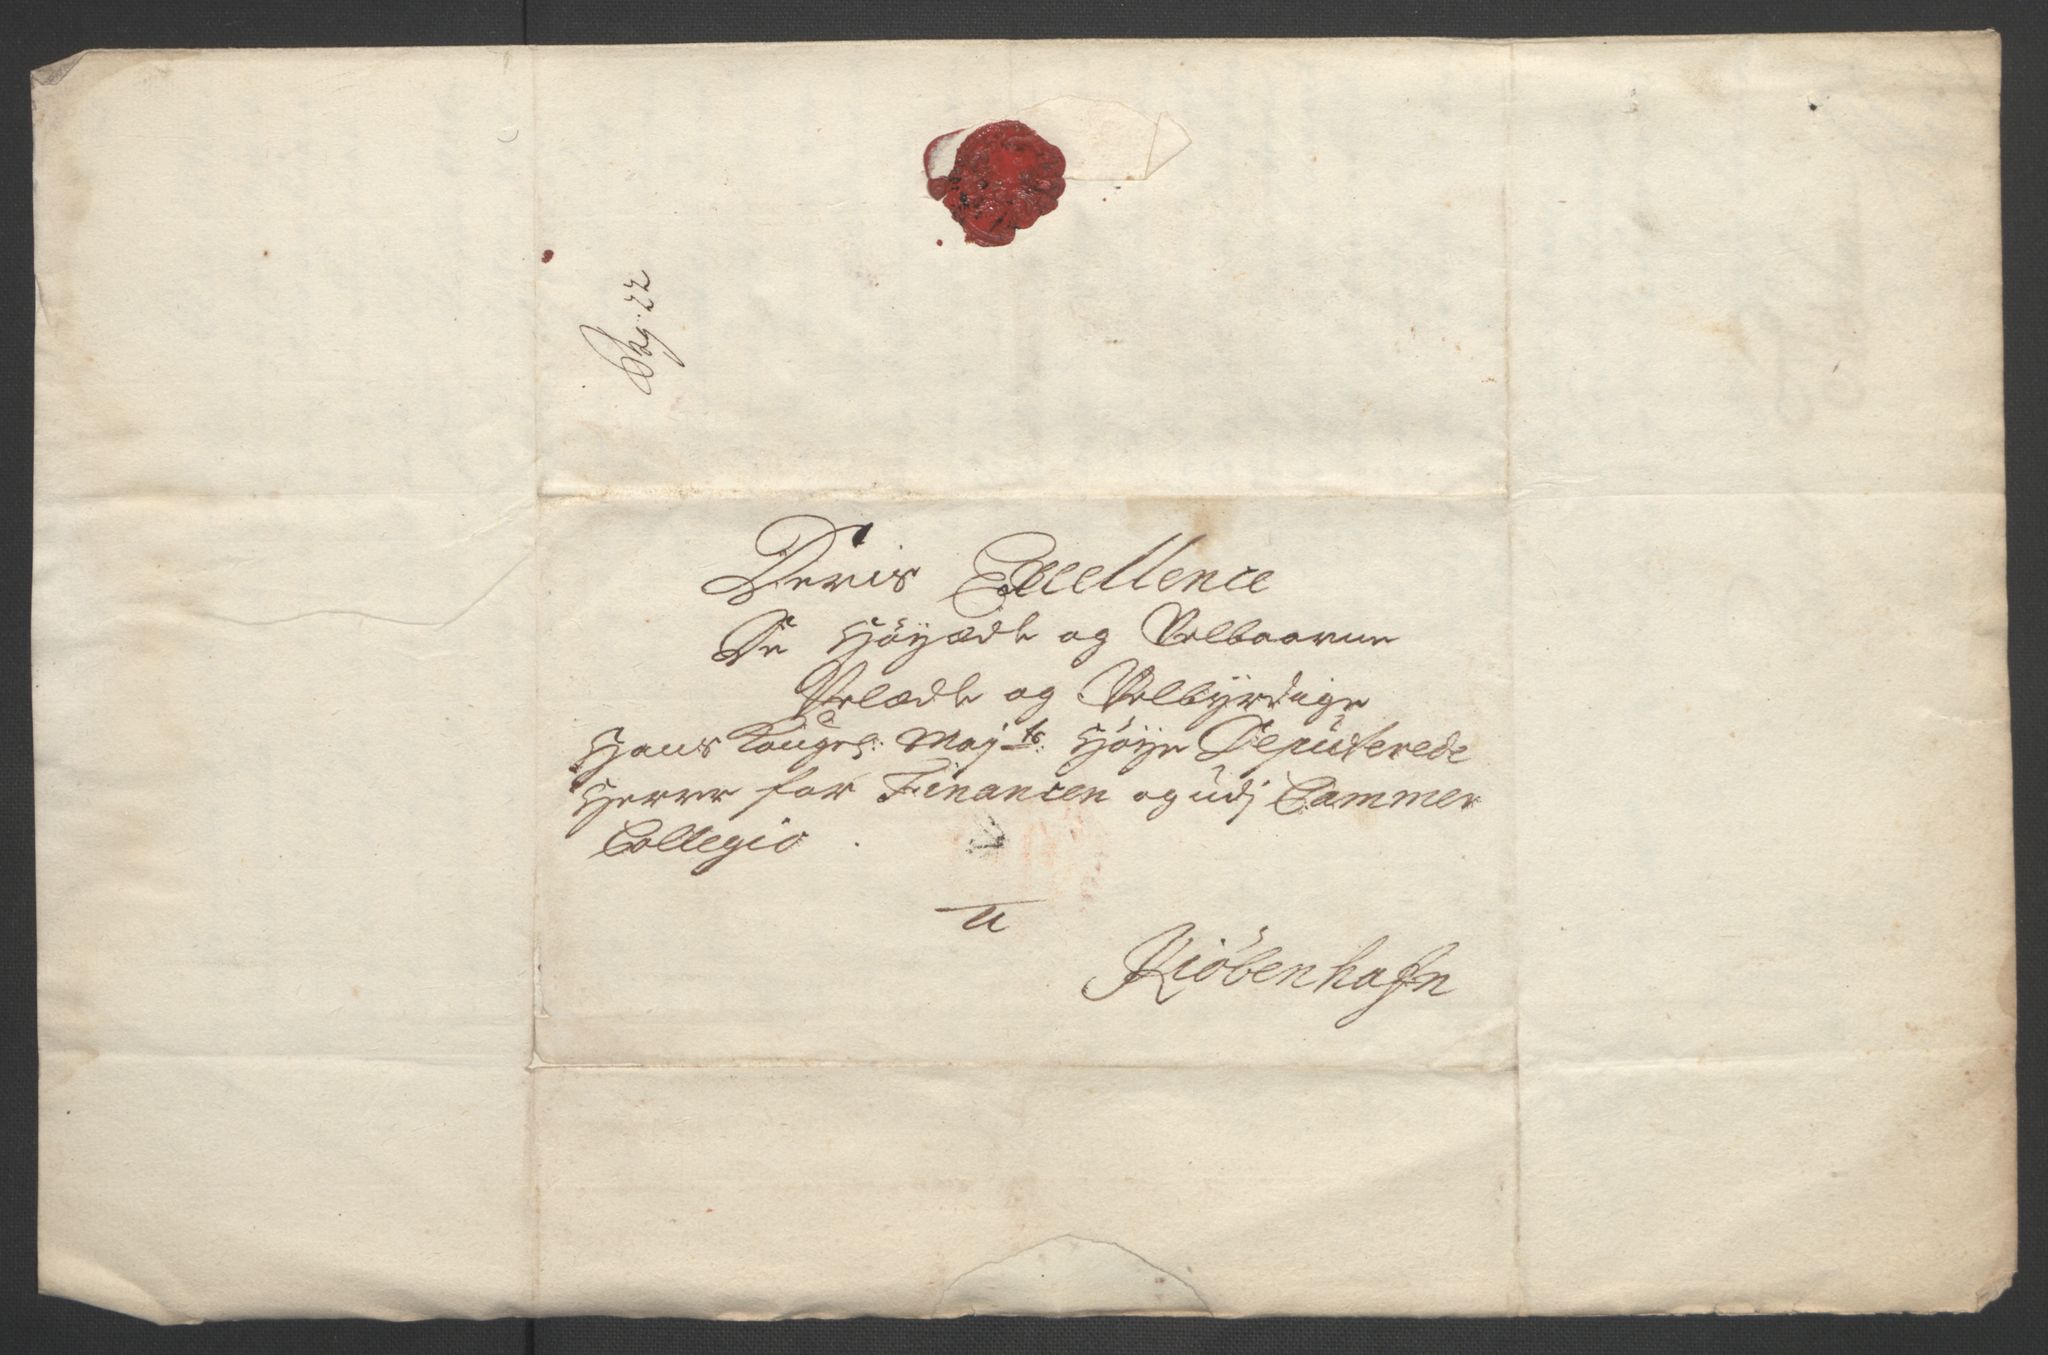 Pag: 22
Deris Excellence
De Höyædle og Velbaarne
Velædle og Velbyrdige
Hans Kongel: Mayts: Höye Deputerede
Herrer for Financen og udj Cammer
Collegio.
a
Kiöbenhafn